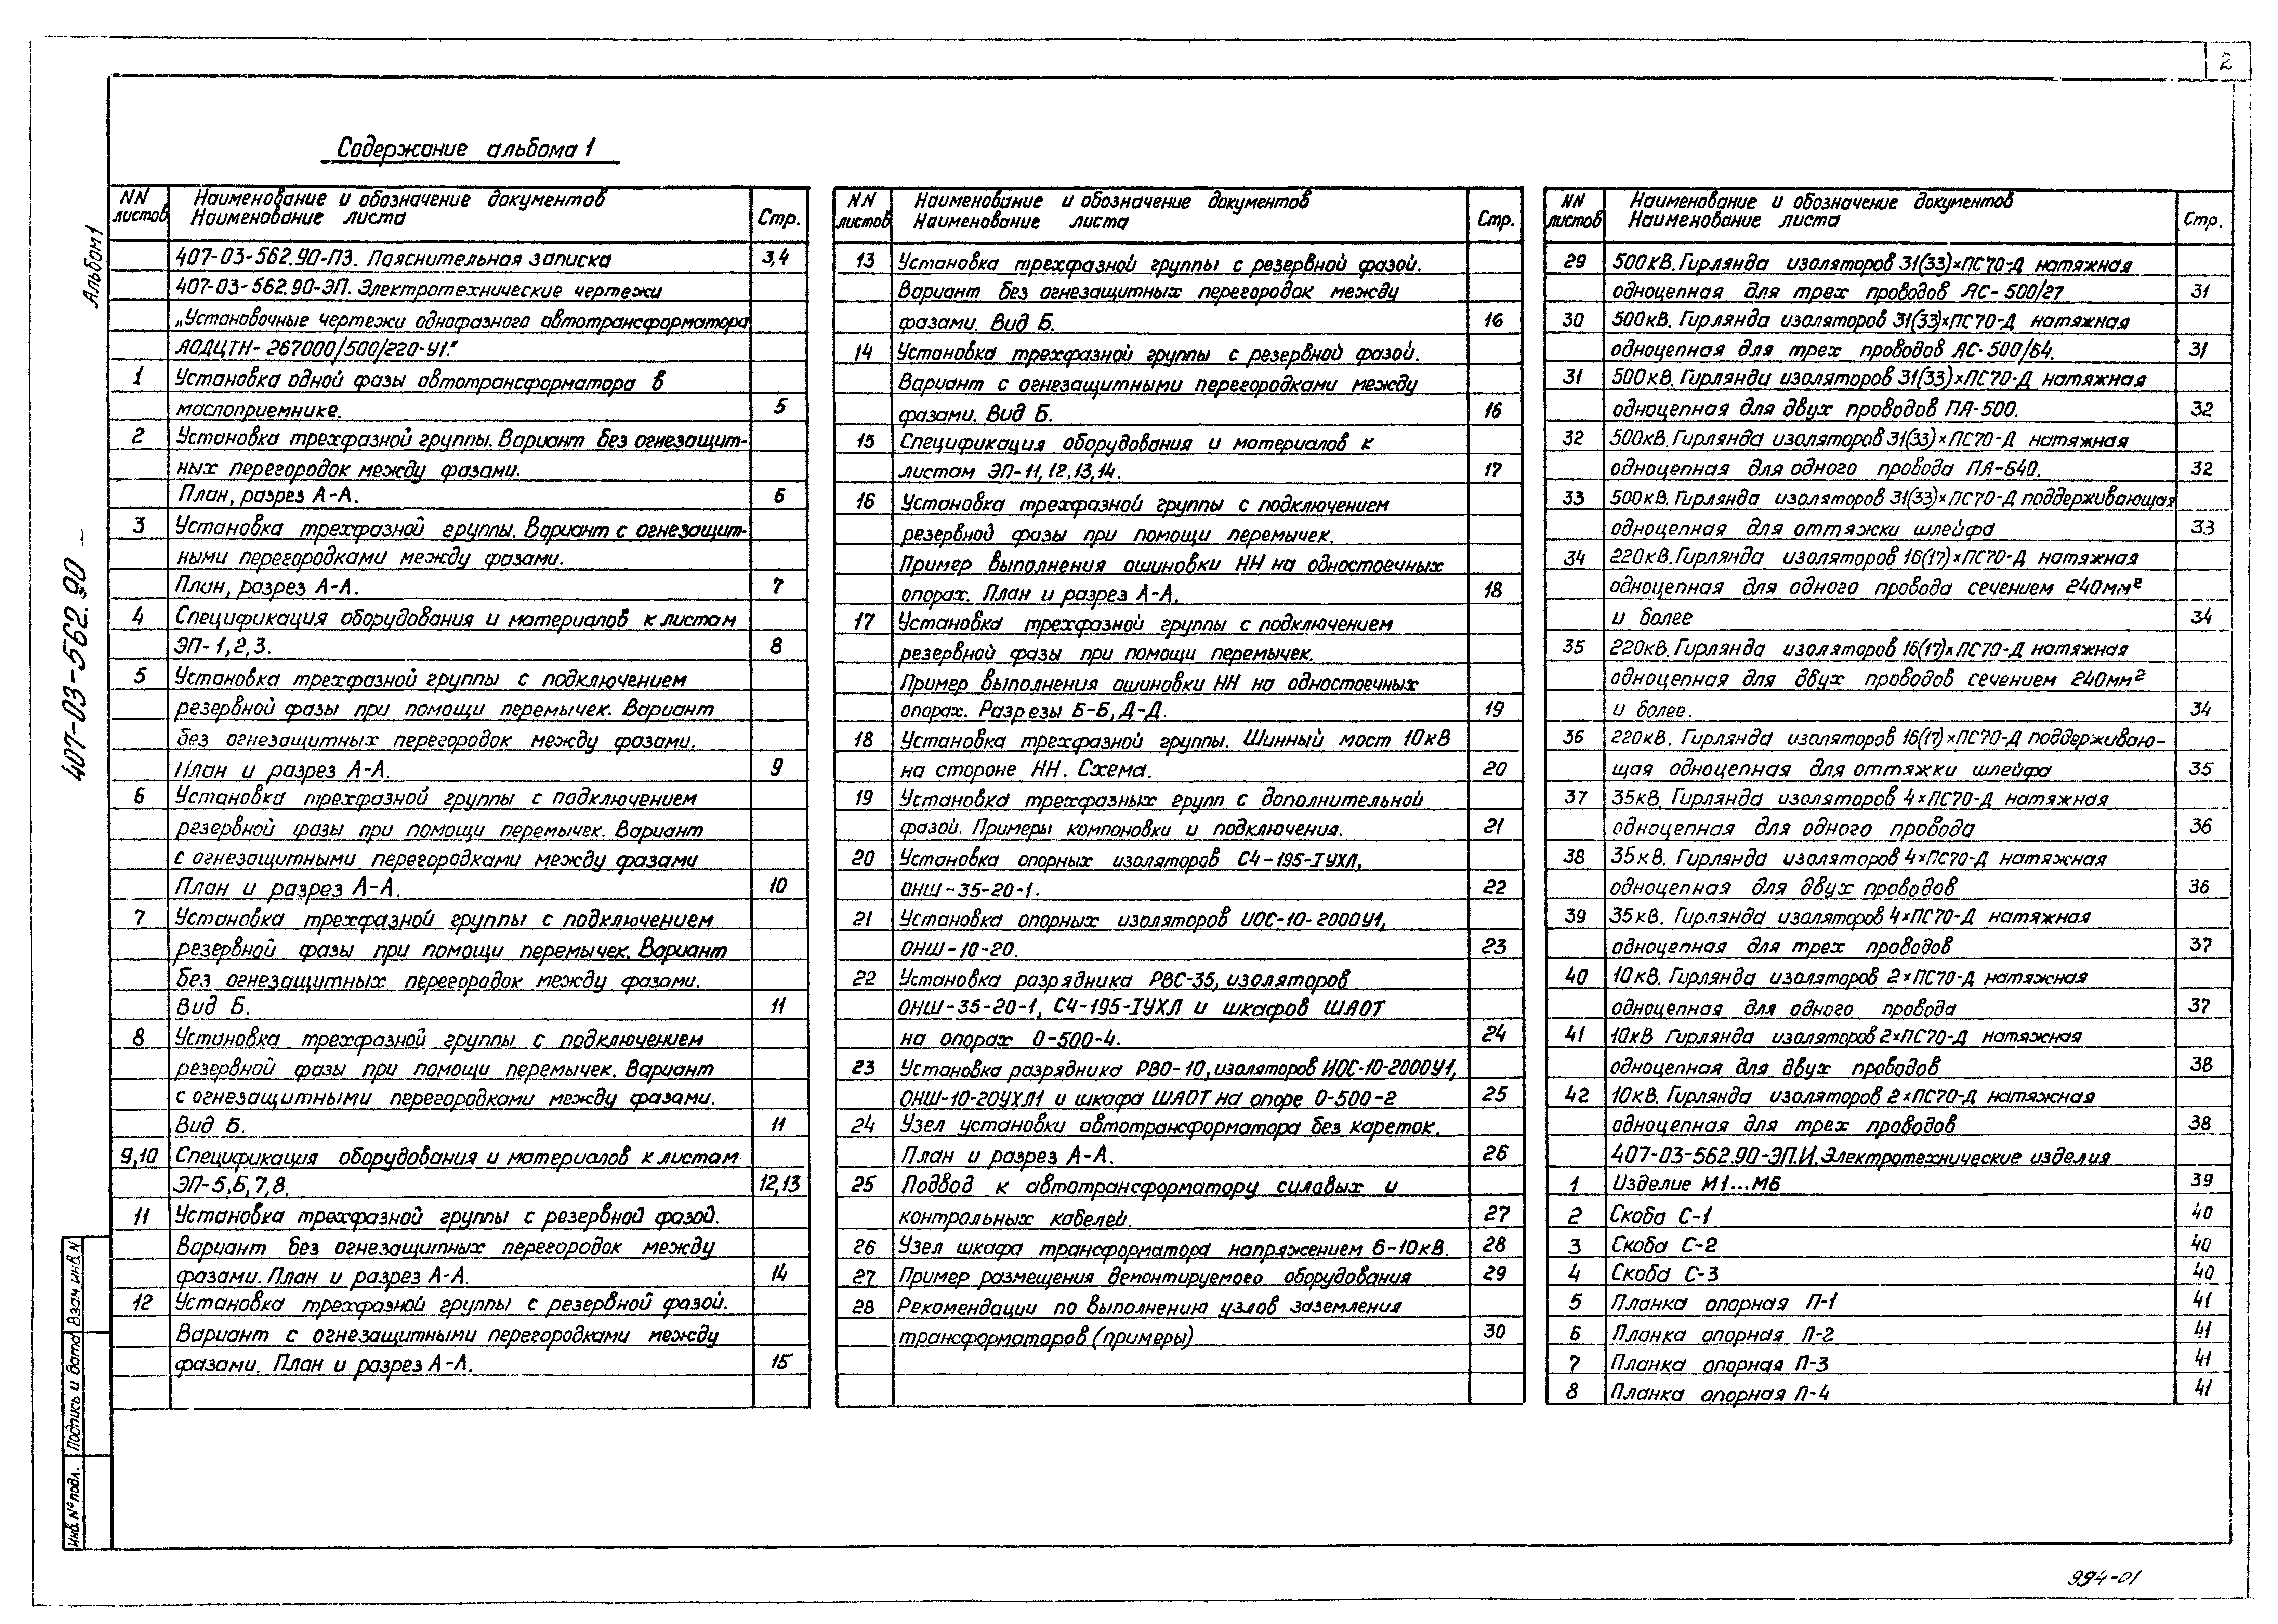 2
Содержание альбома 1
Альбом 1
407-03-562.90 -
NN листов
Наименование и обозначение документов
Наименование листа
Стр.
407-03-562.90-ПЗ. Пояснительная записка 3,4
407-03-562.90-ЭП. Электротехнические чертежи
„Установочные чертежи однофазного автотрансформатора
АОДЦТН-267000/500/220-У1."
1 Установка одной фазы автотрансформатора в
маслоприемнике. 5
2 Установка трехфазной группы. Вариант без огнезащит-
ных перегородок между фазами.
План, разрез А-А. 6
3 Установка трехфазной группы. Вариант с огнезащит-
ными перегородками между фазами.
План, разрез А-А. 7
4 Спецификация оборудования и материалов к листам
ЭП-1,2,3. 8
5 Установка трехфазной группы с подключением
резервной фазы при помощи перемычек. Вариант
без огнезащитных перегородок между фазами.
План и разрез А-А. 9
6 Установка трехфазной группы с подключением
резервной фазы при помощи перемычек. Вариант
с огнезащитными перегородками между фазами
План и разрез А-А. 10
7 Установка трехфазной группы с подключением
резервной фазы при помощи перемычек. Вариант
без огнезащитных перегородок между фазами.
Вид Б. 11
8 Установка трехфазной группы с подключением
резервной фазы при помощи перемычек. Вариант
с огнезащитными перегородками между фазами.
Вид Б. 11
9,10 Спецификация оборудования и материалов к листам
ЭП-5,6,7,8. 12,13
11 Установка трехфазной группы с резервной фазой.
Вариант без огнезащитных перегородок между
фазами. План и разрез А-А. 14
12 Установка трехфазной группы с резервной фазой.
Вариант с огнезащитными перегородками между
фазами. План и разрез А-А. 15
NN листов
Наименование и обозначение документов
Наименование листа
Стр.
13 Установка трехфазной группы с резервной фазой.
Вариант без огнезащитных перегородок между
фазами. Вид Б. 16
14 Установка трехфазной группы с резервной фазой.
Вариант с огнезащитными перегородками между
фазами. Вид Б. 16
15 Спецификация оборудования и материалов к
листам ЭП-11,12,13,14. 17
16 Установка трехфазной группы с подключением
резервной фазы при помощи перемычек.
Пример выполнения ошиновки НН на одностоечных
опорах. План и разрез А-А. 18
17 Установка трехфазной группы с подключением
резервной фазы при помощи перемычек.
Пример выполнения ошиновки НН на одностоечных
опорах. Разрезы Б-Б, Д-Д. 19
18 Установка трехфазной группы. Шинный мост 10кВ
на стороне НН. Схема. 20
19 Установка трехфазных групп с дополнительной
фазой. Примеры компоновки и подключения. 21
20 Установка опорных изоляторов С4-195-IУХЛ,
ОНШ-35-20-1. 22
21 Установка опорных изоляторов ИОС-10-2000У1,
ОНШ-10-20. 23
22 Установка разрядника РВС-35, изоляторов
ОНШ-35-20-1, С4-195-IУХЛ и шкафов ШАОТ
на опорах О-500-4. 24
23 Установка разрядника РВО-10, изоляторов ИОС-10-2000У1,
ОНШ-10-20УХЛ1 и шкафа ШАОТ на опоре О-500-2 25
24 Узел установки автотрансформатора без кареток.
План и разрез А-А. 26
25 Подвод к автотрансформатору силовых и
контрольных кабелей. 27
26 Узел шкафа трансформатора напряжением 6-10кВ. 28
27 Пример размещения демонтируемого оборудования 29
28 Рекомендации по выполнению узлов заземления
трансформаторов (примеры) 30
NN листов
Наименование и обозначение документов
Наименование листа
Стр.
29 500кВ. Гирлянда изоляторов 31(33)×ПС70-Д натяжная
одноцепная для трех проводов АС-500/27 31
30 500кВ. Гирлянда изоляторов 31(33)×ПС70-Д натяжная
одноцепная для трех проводов АС-500/64. 31
31 500кВ. Гирлянда изоляторов 31(33)×ПС70-Д натяжная
одноцепная для двух проводов ПА-500. 32
32 500кВ. Гирлянда изоляторов 31(33)×ПС70-Д натяжная
одноцепная для одного провода ПА-640. 32
33 500кВ. Гирлянда изоляторов 31(33)×ПС70-Д поддерживающая
одноцепная для оттяжки шлейфа 33
34 220кВ. Гирлянда изоляторов 16(17)×ПС70-Д натяжная
одноцепная для одного провода сечением 240мм²
и более 34
35 220кВ. Гирлянда изоляторов 16(17)×ПС70-Д натяжная
одноцепная для двух проводов сечением 240мм²
и более. 34
36 220кВ. Гирлянда изоляторов 16(17)×ПС70-Д поддерживаю-
щая одноцепная для оттяжки шлейфа 35
37 35кВ. Гирлянда изоляторов 4×ПС70-Д натяжная
одноцепная для одного провода 36
38 35кВ. Гирлянда изоляторов 4×ПС70-Д натяжная
одноцепная для двух проводов 36
39 35кВ. Гирлянда изоляторов 4×ПС70-Д натяжная
одноцепная для трех проводов 37
40 10кВ. Гирлянда изоляторов 2×ПС70-Д натяжная
одноцепная для одного провода 37
41 10кВ Гирлянда изоляторов 2×ПС70-Д натяжная
одноцепная для двух проводов 38
42 10кВ. Гирлянда изоляторов 2×ПС70-Д натяжная
одноцепная для трех проводов 38
407-03-562.90-ЭП.И. Электротехнические изделия
1 Изделие М1...М6 39
2 Скоба С-1 40
3 Скоба С-2 40
4 Скоба С-3 40
5 Планка опорная П-1 41
6 Планка опорная П-2 41
7 Планка опорная П-3 41
8 Планка опорная П-4 41
Инв. N° подл.
Подпись и дата
Взам инв. N
994-01